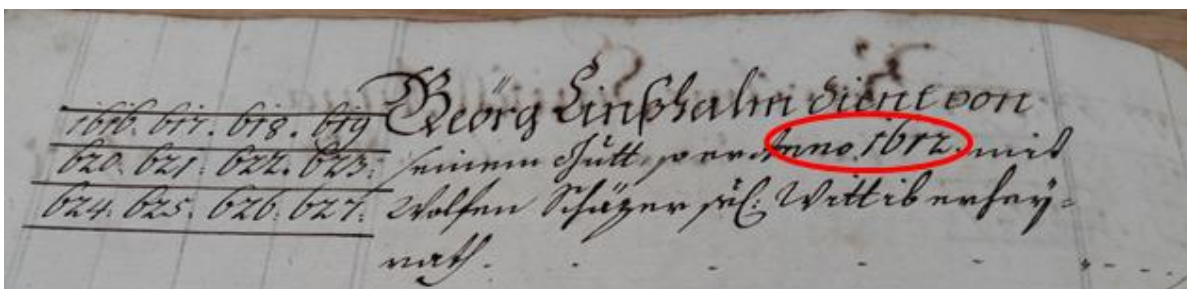 1616. 617. 618. 619
620. 621. 622. 623.
624. 625. 626. 627.
Georg Linßhalm dient von
seinem Guett, so er Anno 1612. mit
Wolfen Schäzer sel: Wittib erhey=
rath.